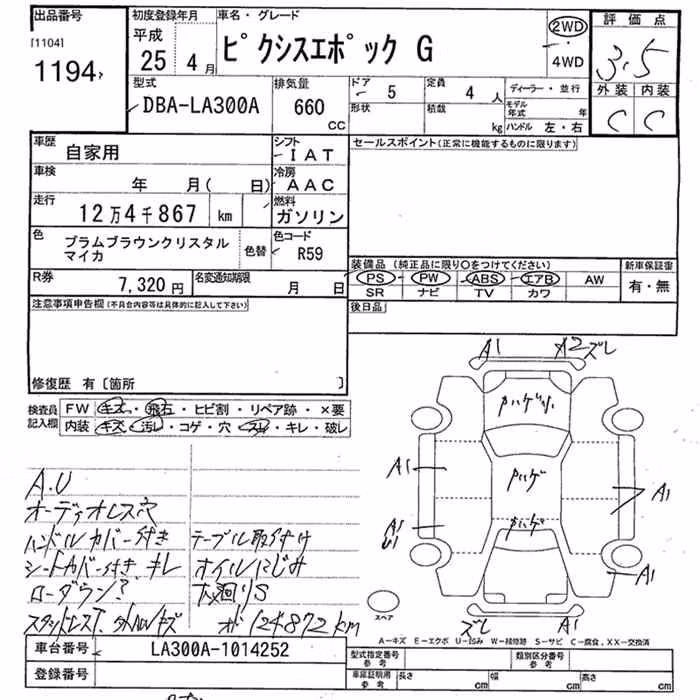 出品番号 初度登録年月 車名・グレード 評価点
[1104] 平成 ピクシスエポック G 2WD 3.5
1194 25 4月 4WD 外装 内装
型式 排気量 ドア 5 定員 4人 ディーラー・並行 C C
DBA-LA300A 660 CC 形状 積載 kg モデル年式 年
ハンドル 左・右
車歴 自家用 シフト IAT セールスポイント(正常に機能するものに限ります)
車検 年 月( 日) 冷房 AAC
走行 12万4千867 km 燃料 ガソリン
色 プラムブラウンクリスタルマイカ 色替 色コード R59
装備品(純正品に限り○をつけてください) 新車保証書
PS PW ABS エアB AW 有・無
SR ナビ TV カワ
R券 7,320円 名変通知期限 月 日
後日品
注意事項申告欄(不具合内容等は具体的に記入して下さい)
修復歴 有〔箇所 〕
検査員記入欄 FW キズ・飛石・ヒビ割・リペア跡・×要
内装 キズ・汚レ・コゲ・穴・スレ・キレ・破レ
A1 A2 ズレ
ハゲ
A1 ハゲ A1
A1 U1 ハゲ
A1
ズレ A1
スペア
A.U
オーディオレス穴
ハンドルカバー付き テーブル取付け
シートカバー付き キレ オイルにじみ
ローダウン? 下廻りS
スタッドレスT. オド124872km
A-キズ E-エクボ U-凹み W-補修跡 S-サビ C-腐食、XX-交換済
車台番号 LA300A-1014252 型式指定番号 参考 類別区分番号 参考
登録番号 車庫証明用 参考 長さ cm 幅 cm 高さ cm